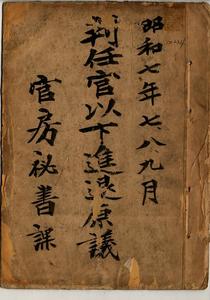 昭和七年七、八、九月
判任官以下進退原議
官房秘書課